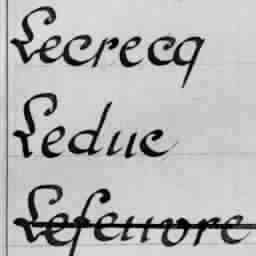 Lecrecq
Leduc
Lefeuvre